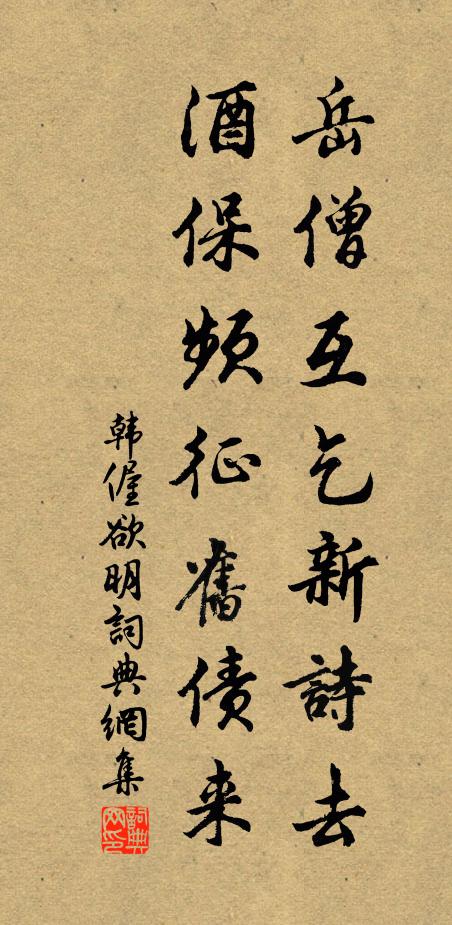 岳僧互乞新詩去
酒保頻征舊債来
韩偓欲明詞典網集
詞典网印